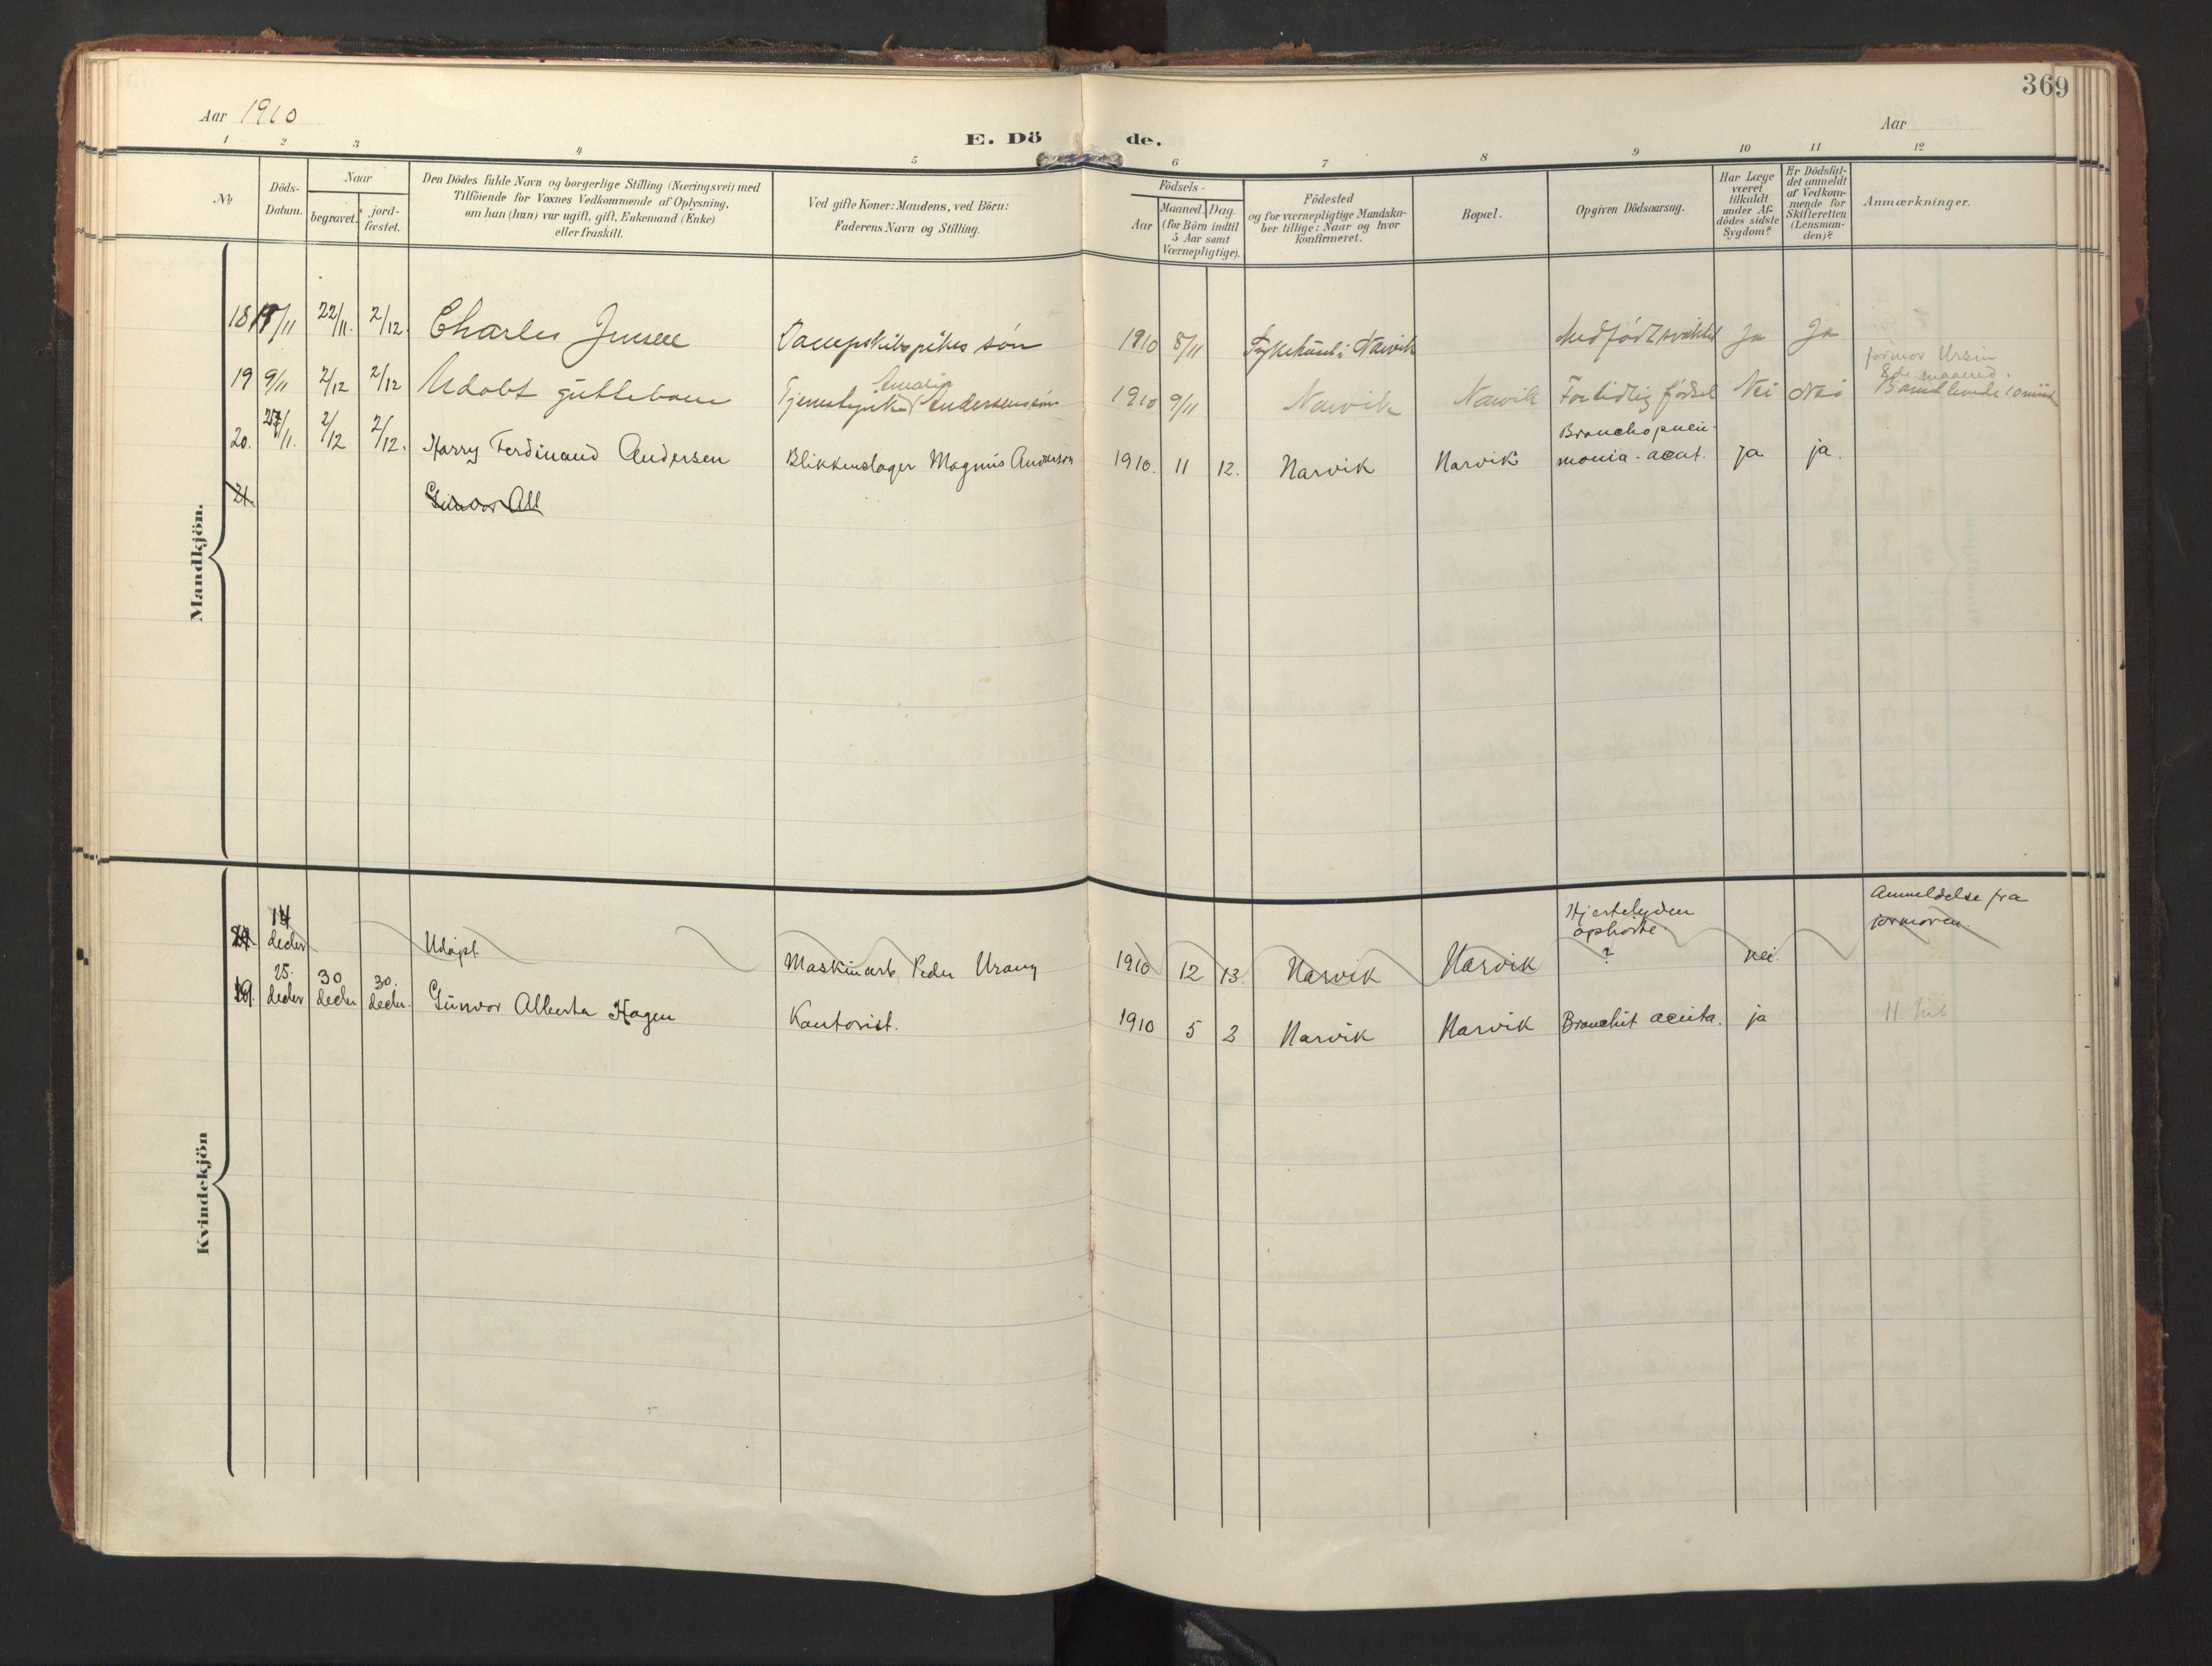 369
Aar 1910
E. Dö
de.
Aar
1 2 3 4 5 6 7 8 9 10 11 12
No
Döds-
Datum.
Naar
begravet.
jord-
fæstet.
Den Dödes fulde Navn og borgerlige Stilling (Næringsvei) med
Tilföiende for Voxnes Vedkommende af Oplysning,
om han (hun) var ugift, gift, Enkemand (Enke)
eller fraskilt.
Ved gifte Koner: Mandens, ved Börn:
Faderens Navn og Stilling.
Födsels-
Aar
Maaned. Dag.
(for Börn indtil
5 Aar samt
Værnepligtige).
Födested
og for værnepligtige Mandska-
ber tillige: Naar og hvor
konfirmeret.
Bopæl.
Opgiven Dödsaarsag.
Har Læge
været
tilkaldt
under Af-
dödes sidste
Sygdom?
Er Dödsfal-
det anmeldt
af Vedkom-
mende for
Skifteretten
(Lensman-
den)?
Anmærkninger.
Mandkjön.
18 /11 22/11. 2/12. Charles Jensen søn 1910 8/11 Narvik Medfødt svakhet Ja Ja
jormor Ursin
19 9/11 2/12 2/12 Udøbt guttebarn Tjenestepike Amalie Andersens søn 1910 9/11 Narvik Narvik Fortidlig fødsel Nei Nei
8de maaned.
Barnet levede 10 min
20. 27/11. 2/12 2/12. Harry Ferdinand Andersen Blikkenslager Magnus Anderson 1910. 11 12. Narvik Narvik Bronchopneu-
monia. acut. ja ja.
21. Gunvor All
Kvindekjön
14
decbr Udøpt. Maskinarb. Peder Urang 1910 12 13. Narvik Narvik Hjertelyden
ophørte.
? nei. Anmeldelse fra
jormoren.
19. 25.
decbr 30
decbr 30.
decbr. Gunvor Alberta Hagen Kontorist. 1910 5 2 Narvik Narvik Bronchit acuta. ja